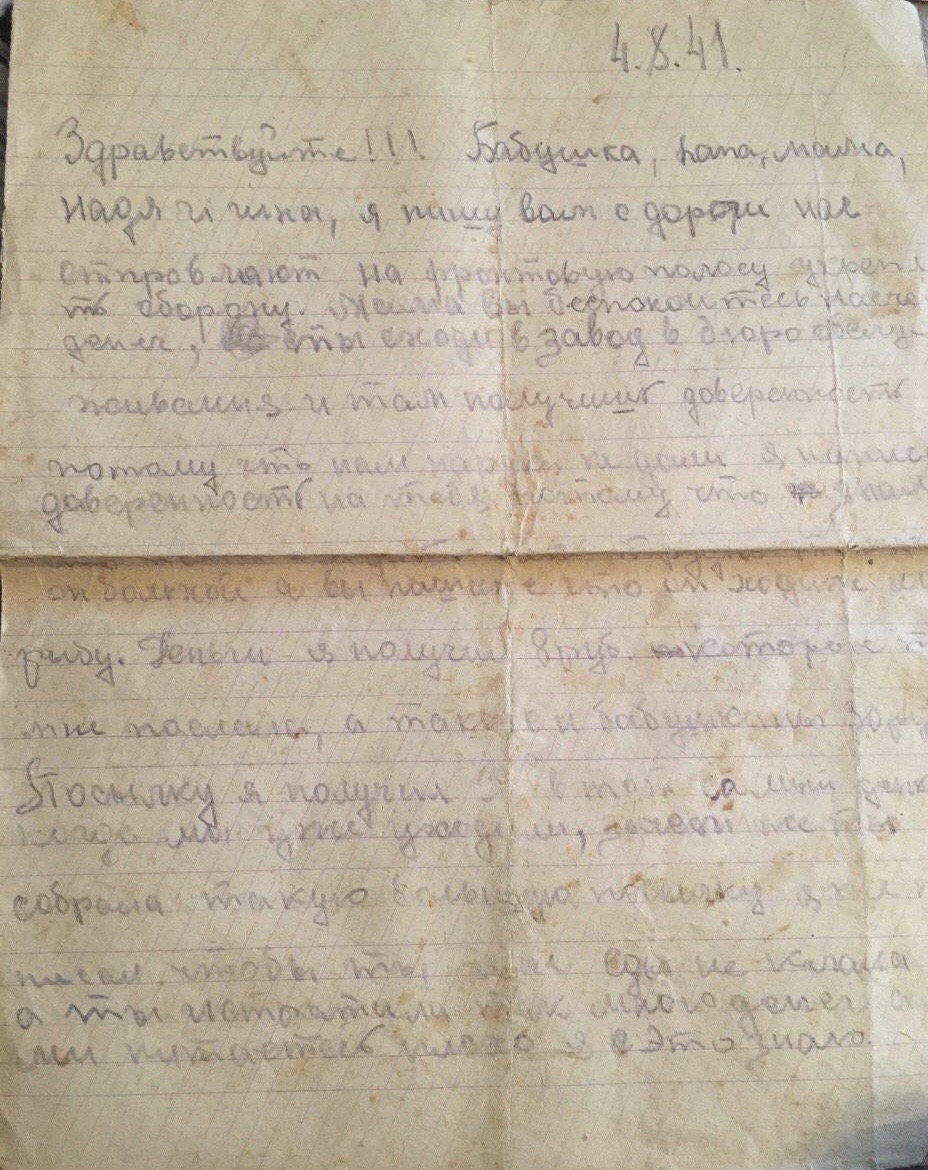 4.8.41.
Здравствуйте!!! Бабушка, папа, мама,
Надя и нина, я пишу вам с дороги нас
отправляют на фронтовую полосу укрепля
ть оборону. Мама вы беспокоитесь насче
денег, ты сходи в завод в бюро
и там получишь доверенность
потому что нам на не дали я написа
доверенность на тебя потому что знал
он больной а вы пишите что он ходит на
рыбу. Деньги я получил 8 руб. которые т
мне послала, а также и бабушкины
Посылку я получил в тот самый день
когда мы уже уходили, зачем же ты
собрала такую большую посылку я же
писал чтобы ты еды не клала
а ты истратила так много денег а
ми питаетесь плохо я это знаю.